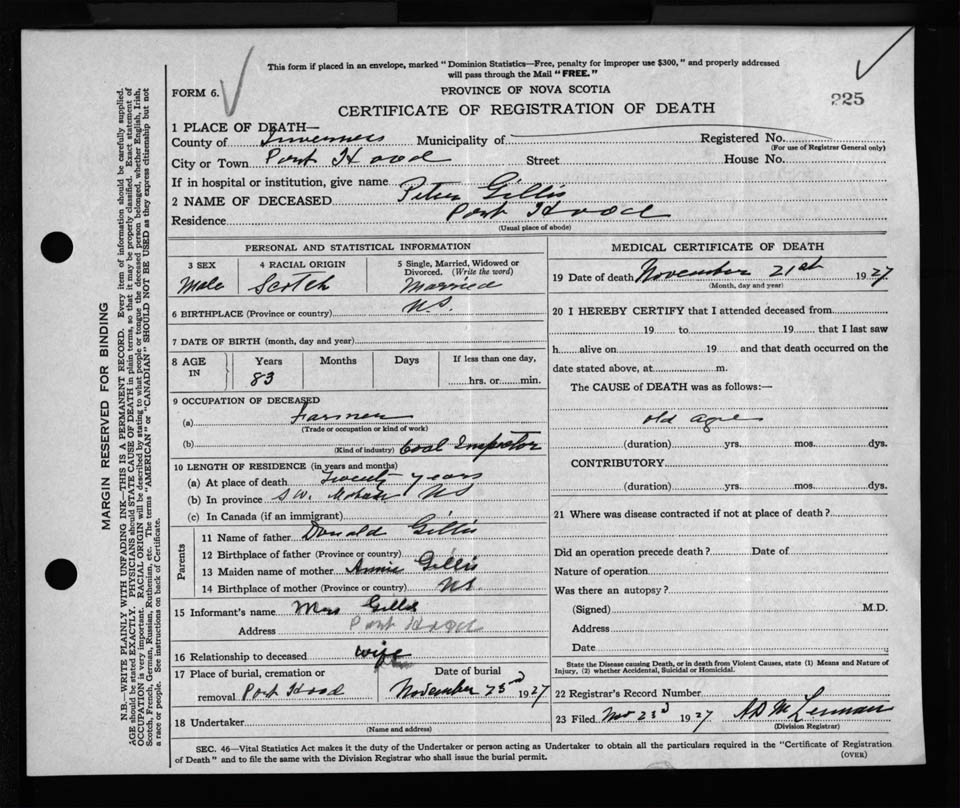 This form if placed in an envelope, marked "Dominion Statistics—Free, penalty for improper use $300," and properly addressed
will pass through the Mail "FREE."
FORM 6.
PROVINCE OF NOVA SCOTIA
225
CERTIFICATE OF REGISTRATION OF DEATH
1 PLACE OF DEATH—
County of Inverness Municipality of Registered No.
(For use of Registrar General only)
City or Town Port Hood Street House No.
If in hospital or institution, give name
2 NAME OF DECEASED Peter Gillis
Residence Port Hood
(Usual place of abode)
PERSONAL AND STATISTICAL INFORMATION
3 SEX 4 RACIAL ORIGIN 5 Single, Married, Widowed or
Divorced. (Write the word)
Male Scotch Married
6 BIRTHPLACE (Province or country) N.S.
7 DATE OF BIRTH (month, day and year)
8 AGE IN Years Months Days If less than one day,
83 hrs. or min.
9 OCCUPATION OF DECEASED
(a) Farmer
(Trade or occupation or kind of work)
(b) (Kind of industry) Coal Inspector
10 LENGTH OF RESIDENCE (in years and months)
(a) At place of death Twenty years
(b) In province S.W. NS
(c) In Canada (if an immigrant)
Parents
11 Name of father Donald Gillis
12 Birthplace of father (Province or country)
13 Maiden name of mother Annie Gillis
14 Birthplace of mother (Province or country) N.S.
15 Informant's name Mrs Gillis
Address Port Hood
16 Relationship to deceased wife
17 Place of burial, cremation or Date of burial
removal Port Hood November 23rd 1927
18 Undertaker
(Name and address)
MEDICAL CERTIFICATE OF DEATH
19 Date of death November 21st 1927
(Month, day and year)
20 I HEREBY CERTIFY that I attended deceased from
19 to 19 that I last saw
h alive on 19 and that death occurred on the
date stated above, at m.
The CAUSE of DEATH was as follows:—
old age
(duration) yrs. mos. dys.
CONTRIBUTORY
(duration) yrs. mos. dys.
21 Where was disease contracted if not at place of death?
Did an operation precede death? Date of
Nature of operation
Was there an autopsy?
(Signed) M.D.
Address
Date
State the Disease causing Death, or in death from Violent Causes, state (1) Means and Nature of
Injury, (2) whether Accidental, Suicidal or Homicidal.
22 Registrar's Record Number
23 Filed Nov 23d 1927 A D McLennan
(Division Registrar)
SEC. 46—Vital Statistics Act makes it the duty of the Undertaker or person acting as Undertaker to obtain all the particulars required in the "Certificate of Registration
of Death" and to file the same with the Division Registrar who shall issue the burial permit.
(OVER)
MARGIN RESERVED FOR BINDING
N.B.—WRITE PLAINLY WITH UNFADING INK—THIS IS A PERMANENT RECORD. Every item of information should be carefully supplied.
AGE should be stated EXACTLY. PHYSICIANS should STATE CAUSE OF DEATH in plain terms, so that it may be properly classified. Exact statement of
OCCUPATION is very important. RACIAL ORIGIN will be described by stating to what people or tongue the deceased person belonged, whether English, Irish,
Scotch, French, German, Russian, Ruthenian, etc. The terms "AMERICAN" or "CANADIAN" SHOULD NOT BE USED as they express citizenship but not
a race or people. See instructions on back of Certificate.